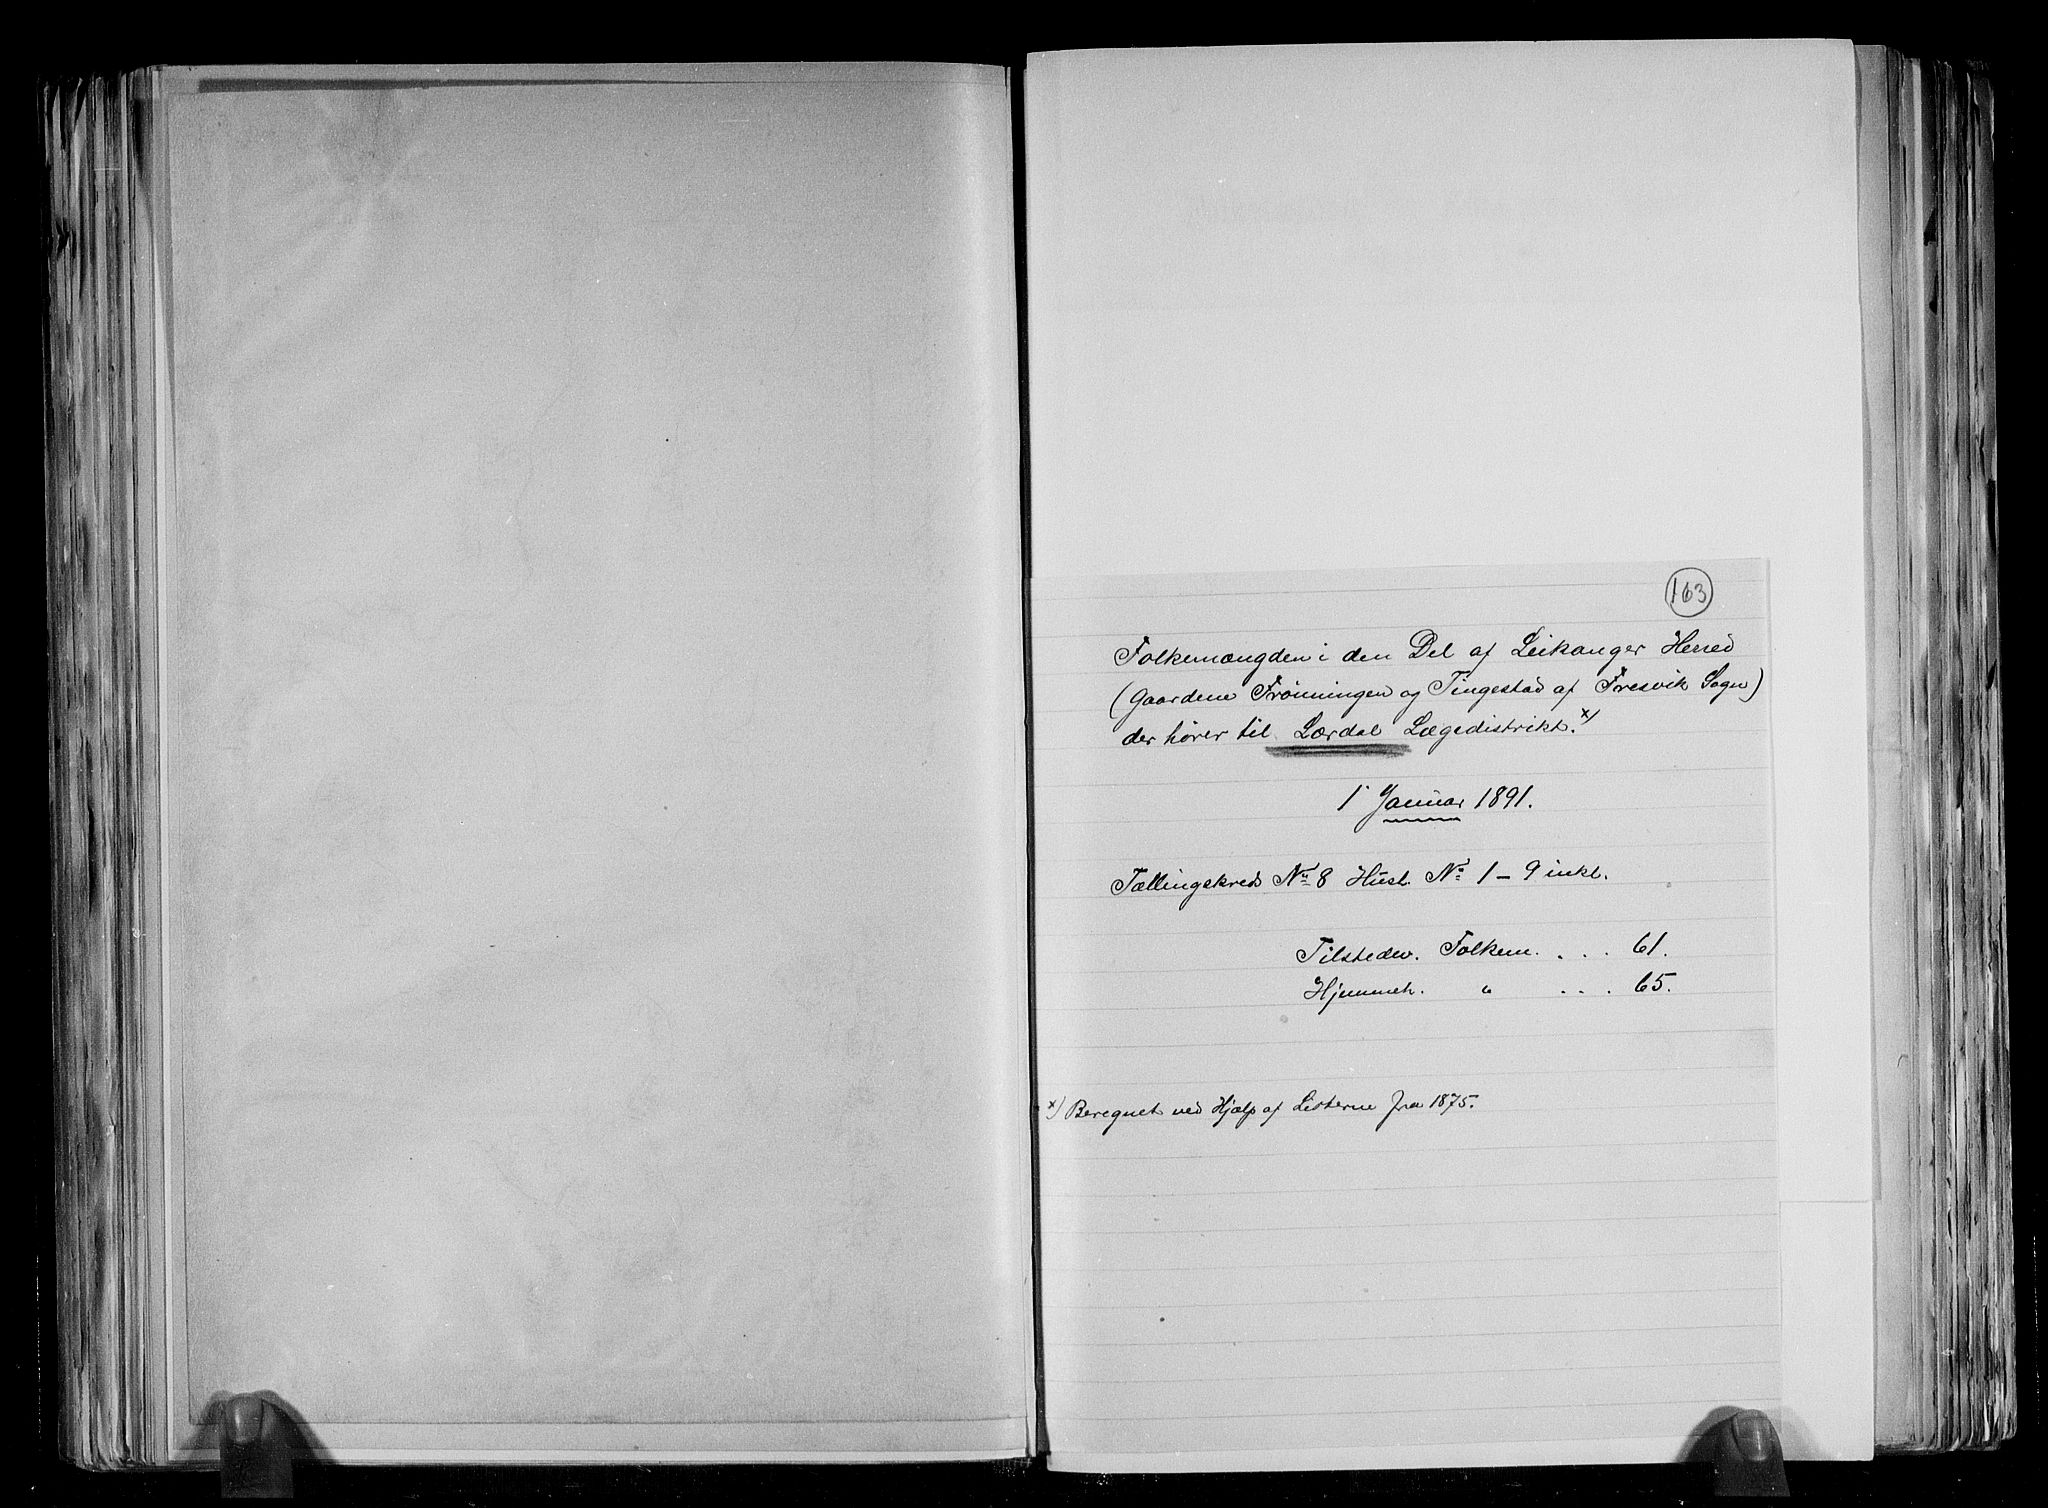 163
Folkemængden i den Del af Leikanger Herred
(Gaardene Frønningen og Tingestad af Fresvik Sogn)
der hører til Lærdal Lægedistrikt. x)
1 Januar 1891.
Tællingskreds No 8 Husl. No 1 – 9 inkl.
Tilstedev. Folkem. . . . 61.
Hjemmeh. " . . . 65.
x) Beregnet ved Hjælp af Listerne fra 1875.